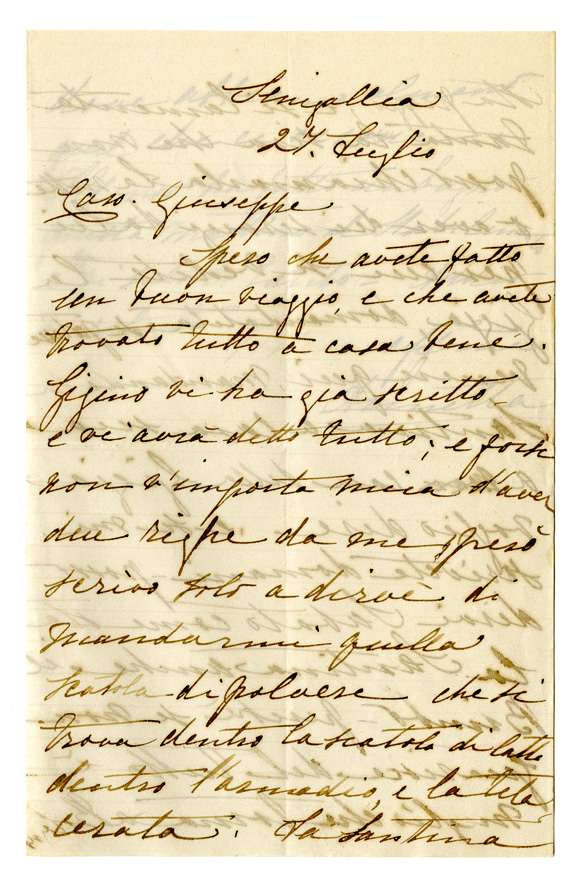 Senigallia
27. Luglio
Caro. Giuseppe
Spero che avete fatto
un buon viaggio, e che avete
trovato tutto a casa bene.
Gigino vi ha già scritto
e vi avrà detto tutto; e forse
non v'importa mica d'aver
due righe da me, però
scrivo solo a dirvi di
mandarmi quella
scatola di polvere che si
trova dentro la scatola di latta
dentro l'armadio, e la tela
cerata. La Santina